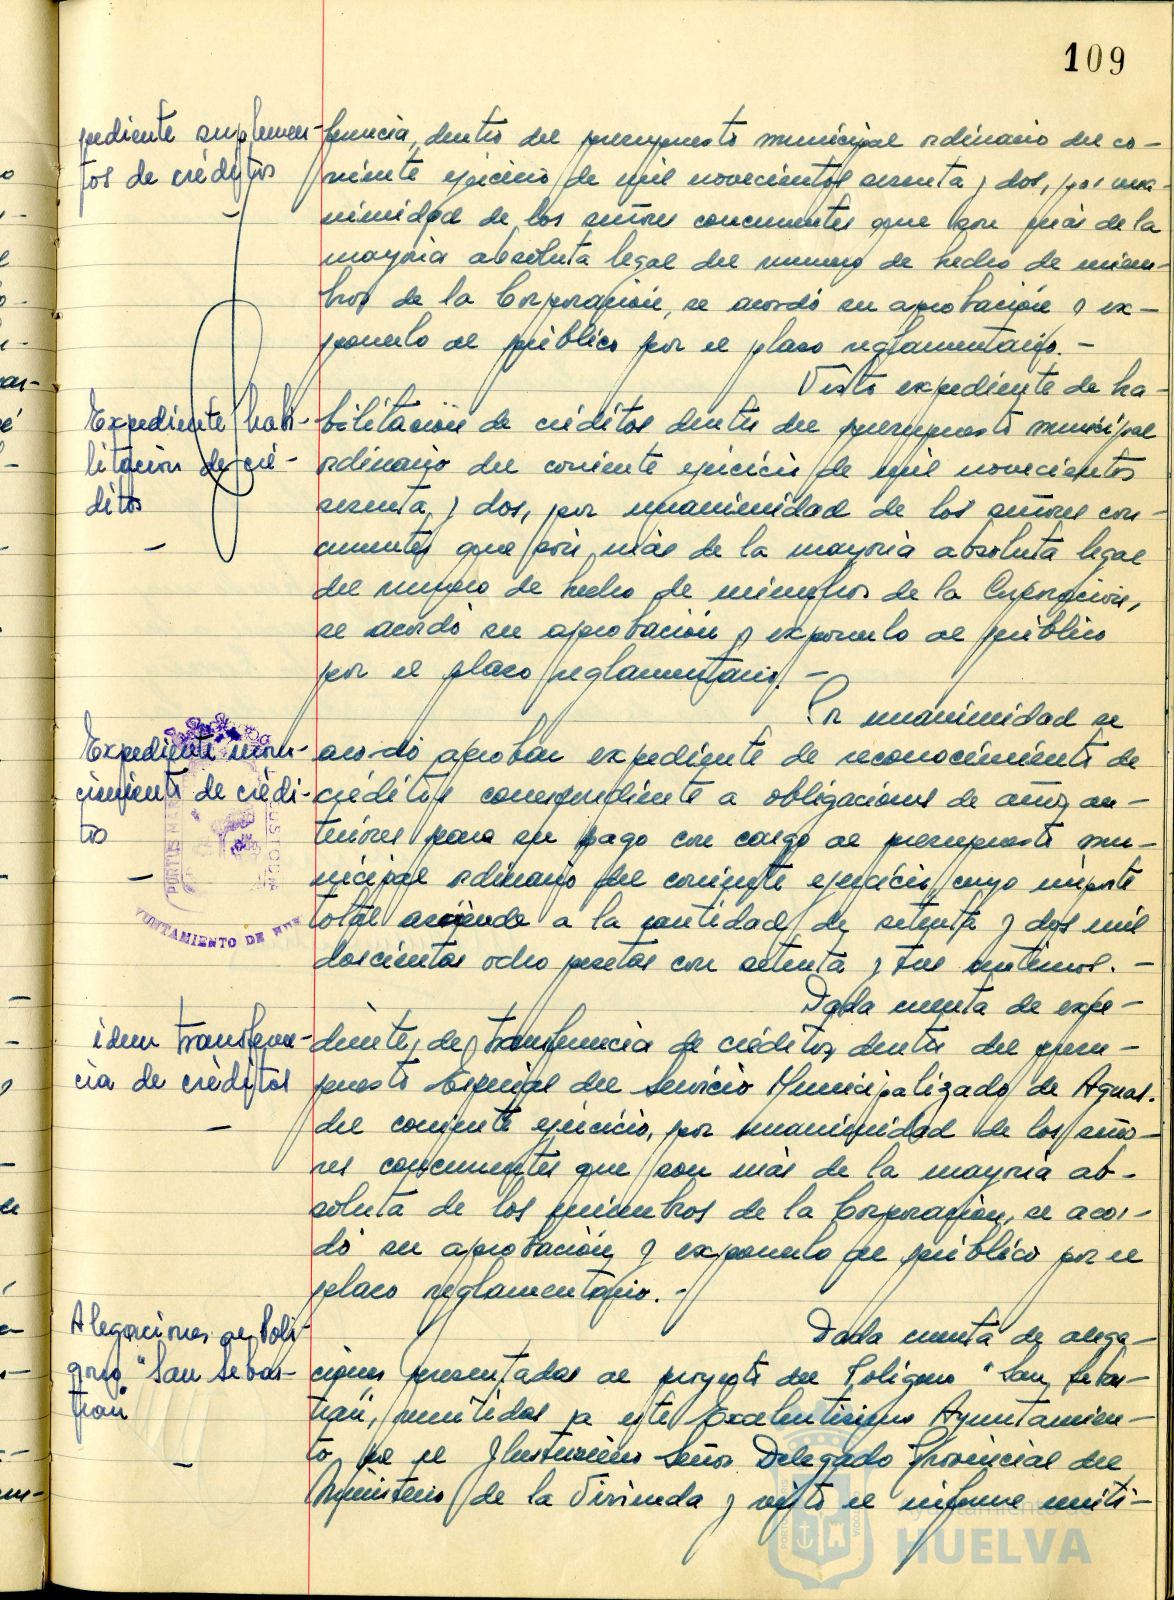 109
pediente suplemen-
tos de créditos
ferencia, dentro del presupuesto municipal ordinario del co-
rriente ejercicio de mil novecientos sesenta y dos, por una-
nimidad de los señores concurrentes que son más de la
mayoria absoluta legal del numero de hecho de miem-
bros de la Corporación, se acordó su aprobación y ex-
ponerlo al público por el plazo reglamentario.-
Visto expediente de ha-
Expediente habi-
litación de cré-
ditos
bilitación de créditos dentro del presupuesto municipal
ordinario del corriente ejercicio de mil novecientos
sesenta y dos, por unanimidad de los señores con-
currentes que son más de la mayoria absoluta legal
del numero de hecho de miembros de la Corporación,
se acordó su aprobación y exponerlo al público
por el plazo reglamentario.-
Por unanimidad se
Expediente recono-
cimiento de crédi-
tos
acordó aprobar expediente de reconocimiento de
créditos correspondiente a obligaciones de años an-
teriores para su pago con cargo al presupuesto mu-
nicipal ordinario del corriente ejercicio, cuyo importe
total asciende a la cantidad de setenta y dos mil
doscientos ocho pesetas con setenta y tres centimos.-
PORTUS MARIS
CUSTODIA
AYUNTAMIENTO DE HUELVA
Dada cuenta de expe-
idem transferen-
cia de créditos
diente de transferencia de créditos dentro del presu-
puesto Especial del Servicio Municipalizado de Aguas.
del corriente ejercicio, por unanimidad de los seño-
res concurrentes que son más de la mayoria ab-
soluta de los miembros de la Corporación, se acor-
dó su aprobación y exponerlo al público por el
plazo reglamentario.-
Dada cuenta de alega-
Alegaciones al Poli-
gono "San Sebas-
tian"
ciones presentadas al proyecto del Poligono "San Sebas-
tián", remitidas a este Excelentisimo Ayuntamien-
to por el Ilustrisimo Señor Delegado Provincial del
Ministerio de la Vivienda y visto el informe emiti-
Ayuntamiento de
HUELVA